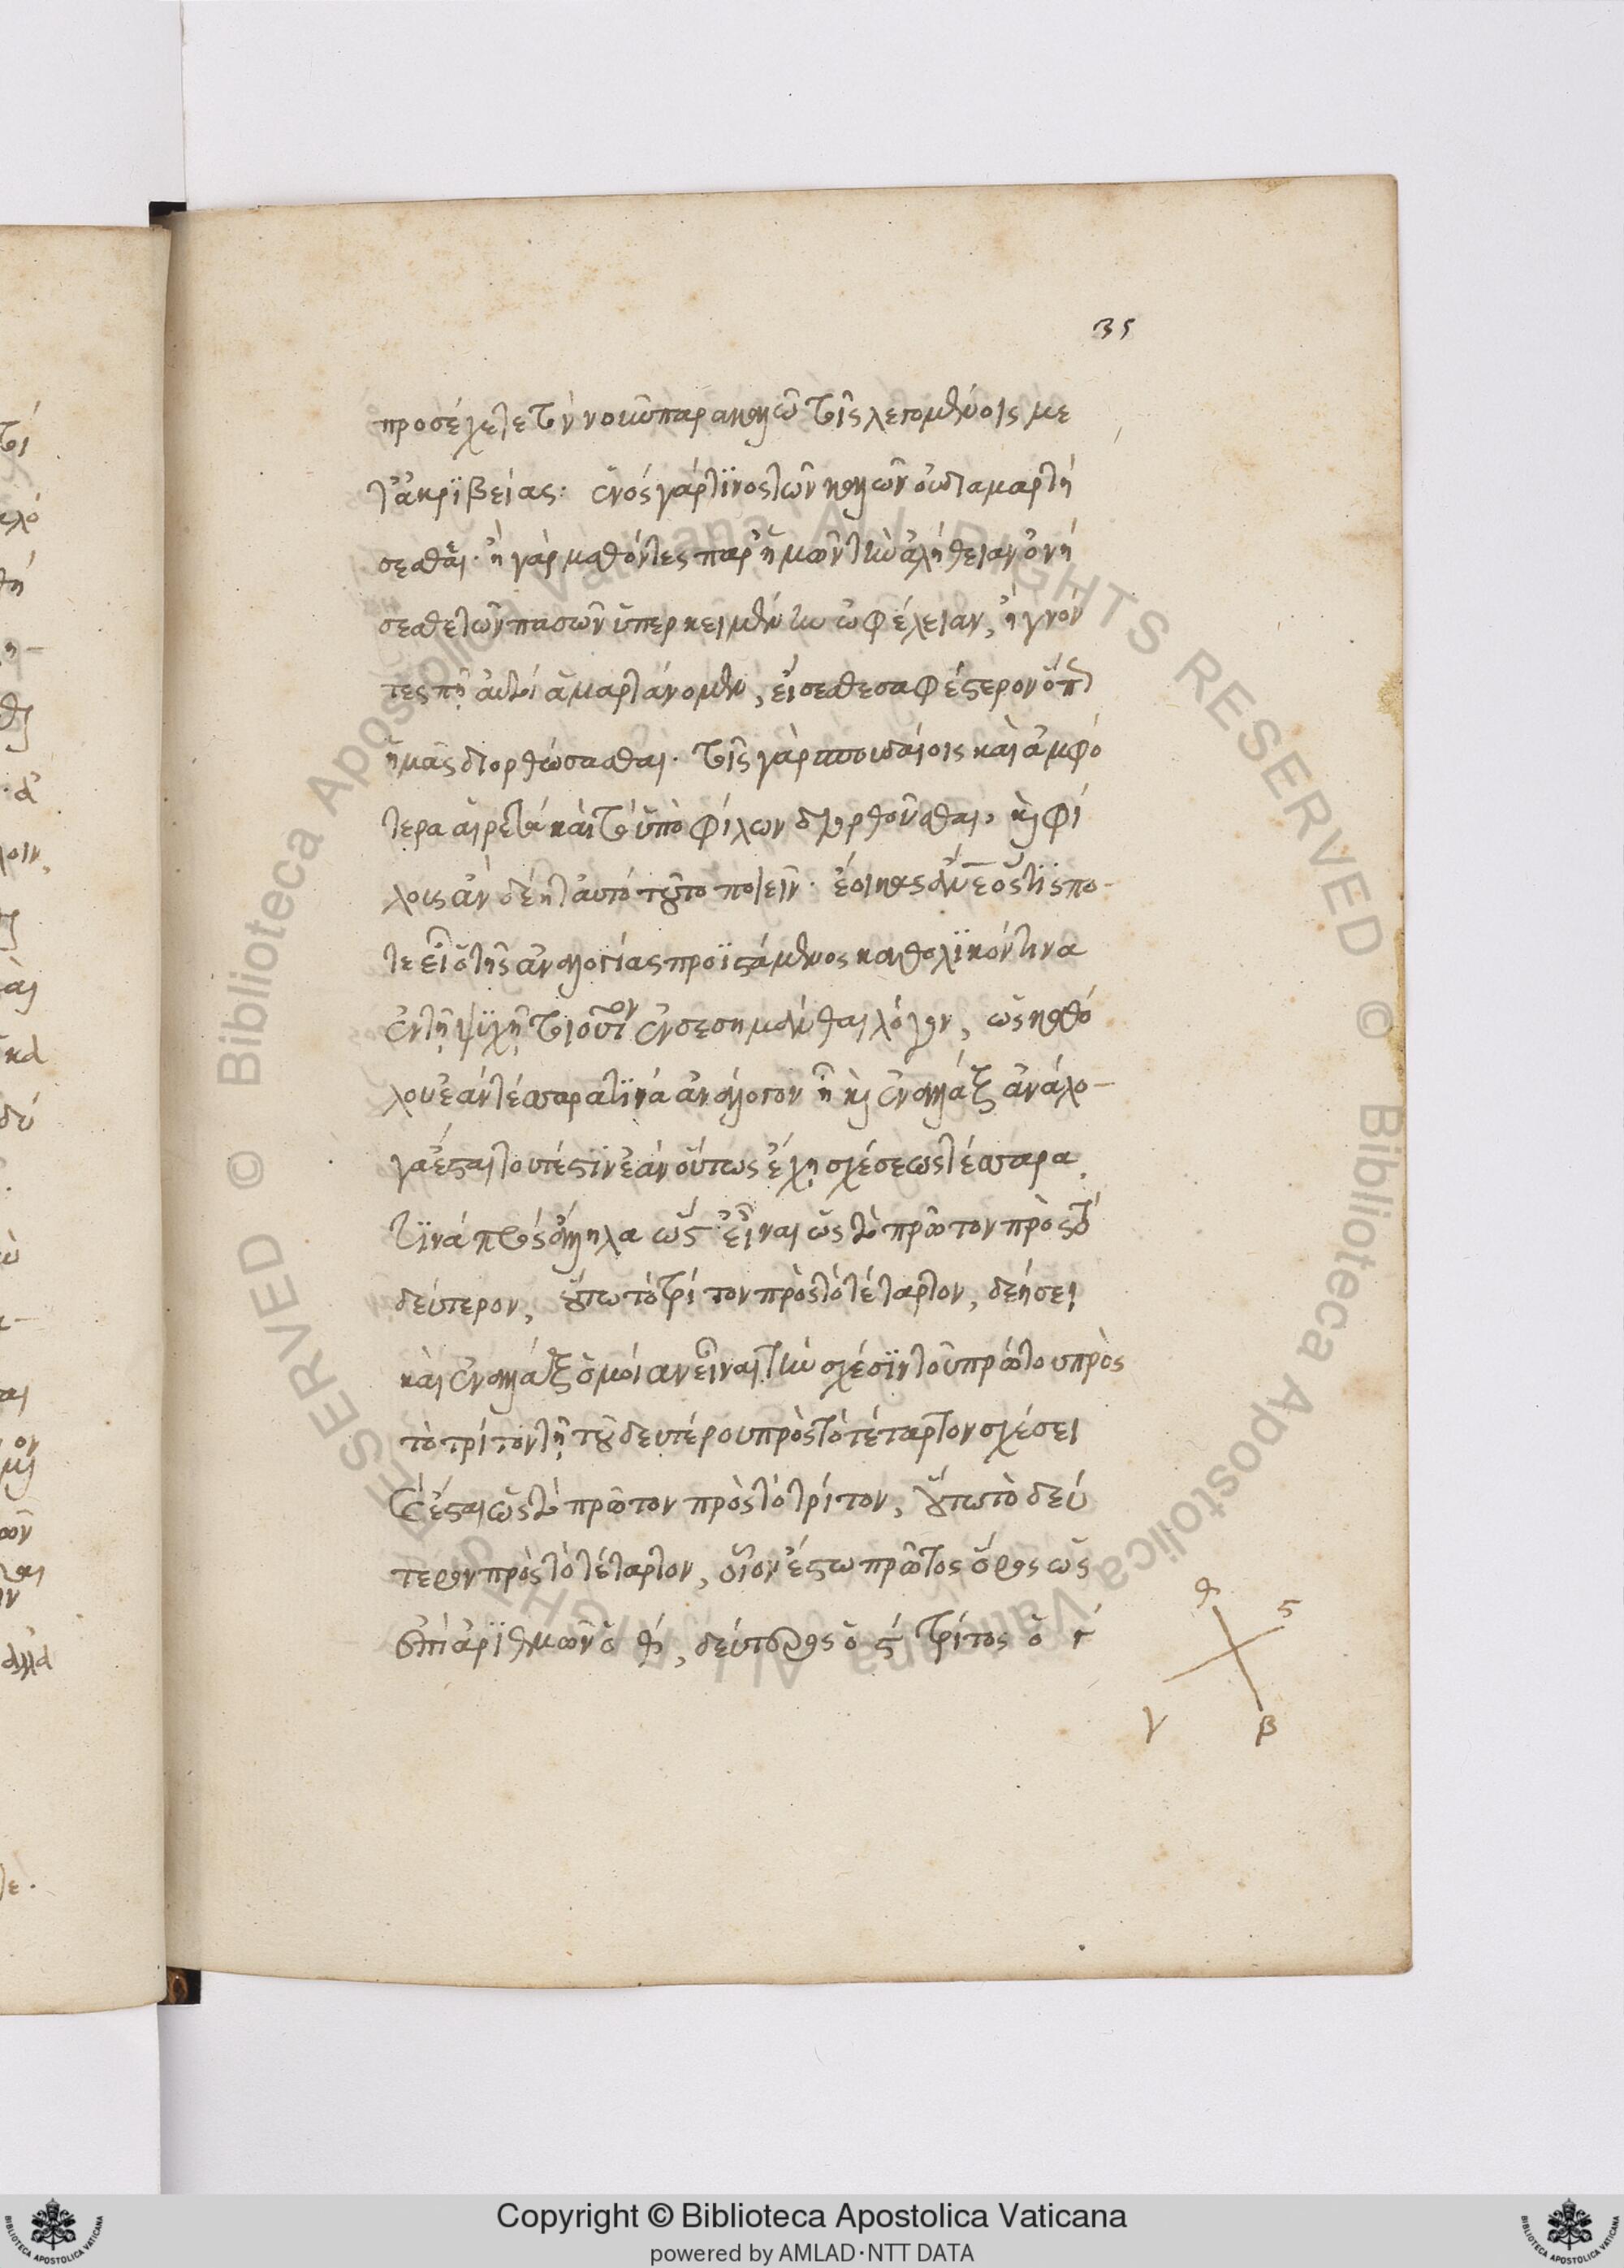 35
προσέχετε τὸν νοῦν παρακαλῶ τοῖς λεγομένοις με
τ' ἀκριβείας: ἑνὸς γάρ τινος τῶν καλῶν οὐ διαμαρτή
σεσθαι· ἢ γὰρ μαθόντες παρ' ἡμῶν τὴν ἀλήθειαν ὀνή
σεσθε τῶν πασῶν ὑπερκειμένην ὠφέλειαν, ἢ γνόν
τες πῇ αὐτοὶ ἁμαρτάνομεν, εἴσεσθε σαφέστερον
ἡμᾶς διορθώσασθαι. τοῖς γὰρ σπουδαίοις καὶ ἀμφό
τερα αἱρετὰ καὶ τὸ ὑπὸ φίλων διορθοῦσθαι, καὶ φί
λοις ἂν δέηται αὐτὸ τοῦτο ποιεῖν. ὅστις πο-
τε εἶ ὁ τῆς προϊστάμενος καθολικόν τινα
ἐν τῇ ψυχῇ τοιοῦτον ἐνσεσημάνθαι λόγον, ὡς καθό
λου ἐὰν τέσσαρά τινα ἀνάλογον ᾖ καὶ ἐναλλὰξ ἀνάλο-
γα ἔσται τουτέστιν ἐὰν οὕτως ἔχῃ σχέσεως τέσσαρα
τινὰ πρὸς ἄλληλα ὥστ' εἶναι ὡς τὸ πρῶτον πρὸς τὸ
δεύτερον, οὕτω τὸ τρίτον πρὸς τὸ τέταρτον, δεήσει
καὶ ἐναλλὰξ ὁμοίαν εἶναι τὴν σχέσιν τοῦ πρώτου πρὸς
τὸ τρίτον τῇ τοῦ δευτέρου πρὸς τὸ τέταρτον σχέσει
καὶ ἔσται ὡς τὸ πρῶτον πρὸς τὸ τρίτον, οὕτω τὸ δεύ
τερον πρὸς τὸ τέταρτον, οἷον ἔστω πρῶτος ὅρος ὡς
ἐπὶ ἀριθμῶν ὁ θ, δεύτερος ὁ ϛ τρίτος ὁ γ
θ ϛ
γ β
Copyright © Biblioteca Apostolica Vaticana
powered by AMLAD·NTT DATA